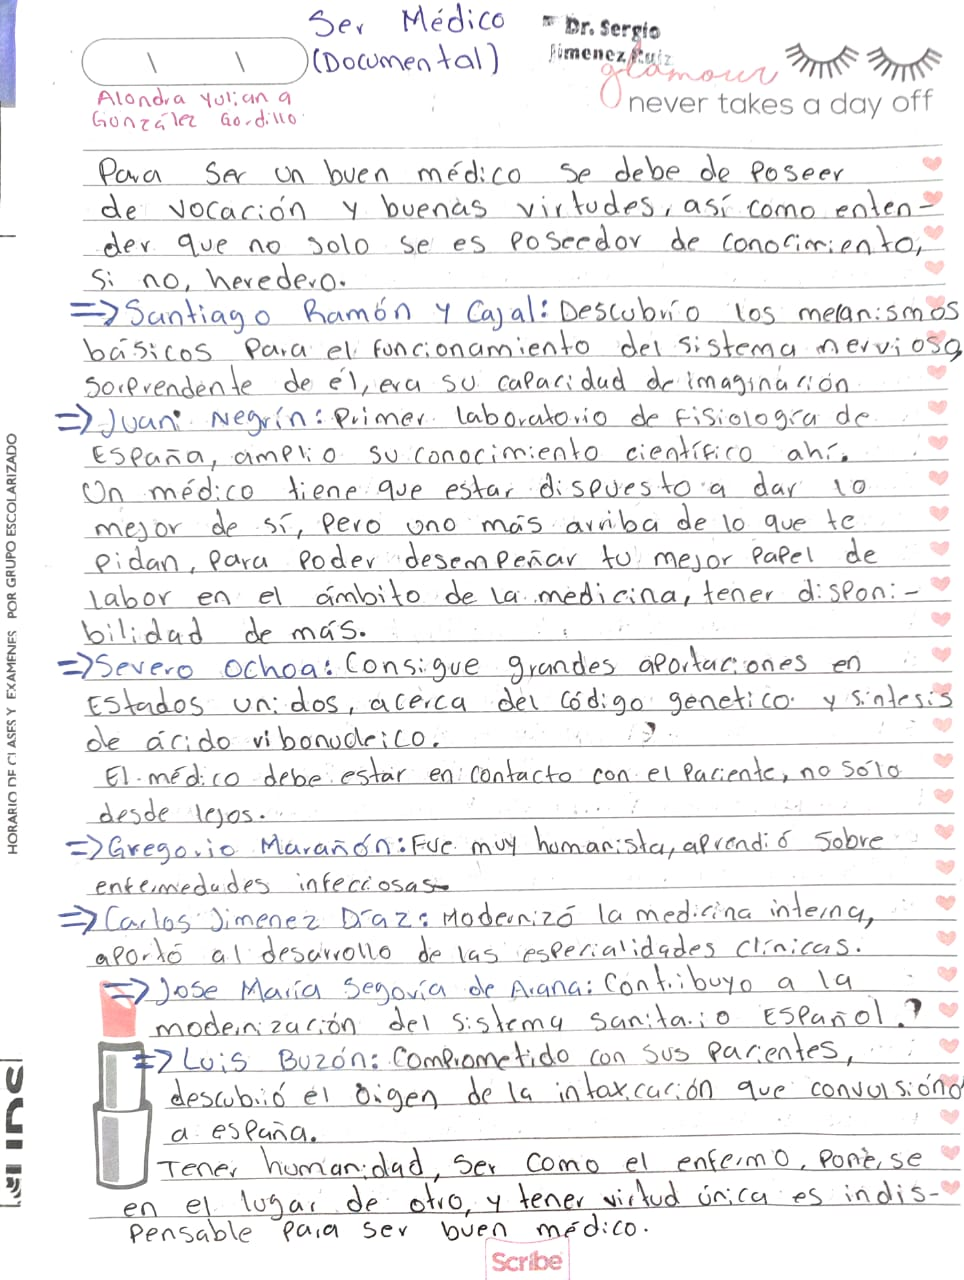 Ser Médico
(Documental)
Dr. Sergio
Jimenez Ruiz
glamour
never takes a day off
Alondra Yuliana
González Gordillo
Para ser un buen médico se debe de poseer
de vocación y buenas virtudes, así como enten-
der que no solo se es poseedor de conocimiento,
si no, heredero.
=> Santiago Ramón y Cajal: Descubrío los mecanismos
básicos para el funcionamiento del sistema nervioso,
sorprendente de él, era su capacidad de imaginación
=> Juan Negrín: Primer laboratorio de fisiología de
España, amplio su conocimiento científico ahí.
Un médico tiene que estar dispuesto a dar lo
mejor de sí, pero uno más arriba de lo que te
pidan, para poder desempeñar tu mejor papel de
labor en el ámbito de la medicina, tener disponi-
bilidad de más.
=> Severo Ochoa: Consigue grandes aportaciones en
Estados unidos, acerca del código genetico y sintesis
de ácido ribonucleico.
El médico debe estar en contacto con el paciente, no sólo
desde lejos.
=> Gregorio Marañón: Fue muy humanista, aprendió sobre
enfermedades infecciosas
=> Carlos Jimenez Díaz: Modernizó la medicina interna,
aportó al desarrollo de las especialidades clínicas.
=> Jose María Segovia de Arana: Contribuyo a la
modernización del sistema sanitario Español.
=> Luis Buzón: Comprometido con sus pacientes,
descubrió el origen de la intoxicación que convulsióno
a españa.
Tener humanidad, ser como el enfermo, ponerse
en el lugar de otro, y tener virtud única es indis-
pensable para ser buen médico.
Scribe
HORARIO DE CLASES Y EXAMENES POR GRUPO ESCOLARIZADO